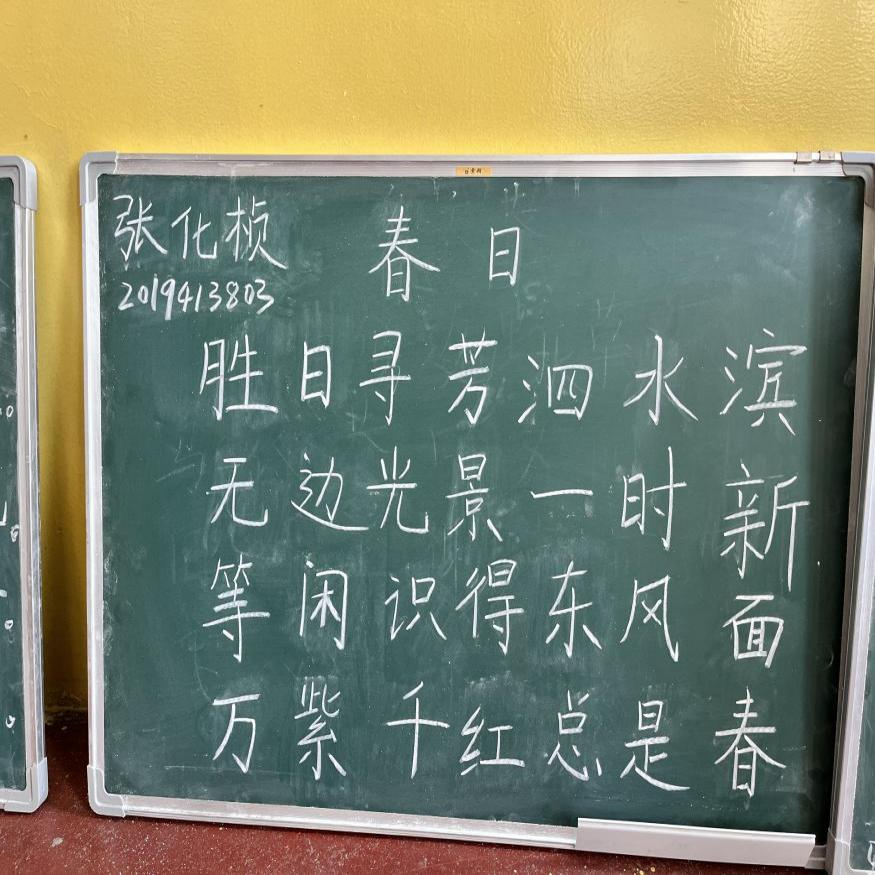 张化桢
春日
2019413803
胜日寻芳泗水滨
无边光景一时新
等闲识得东风面
万紫千红总是春